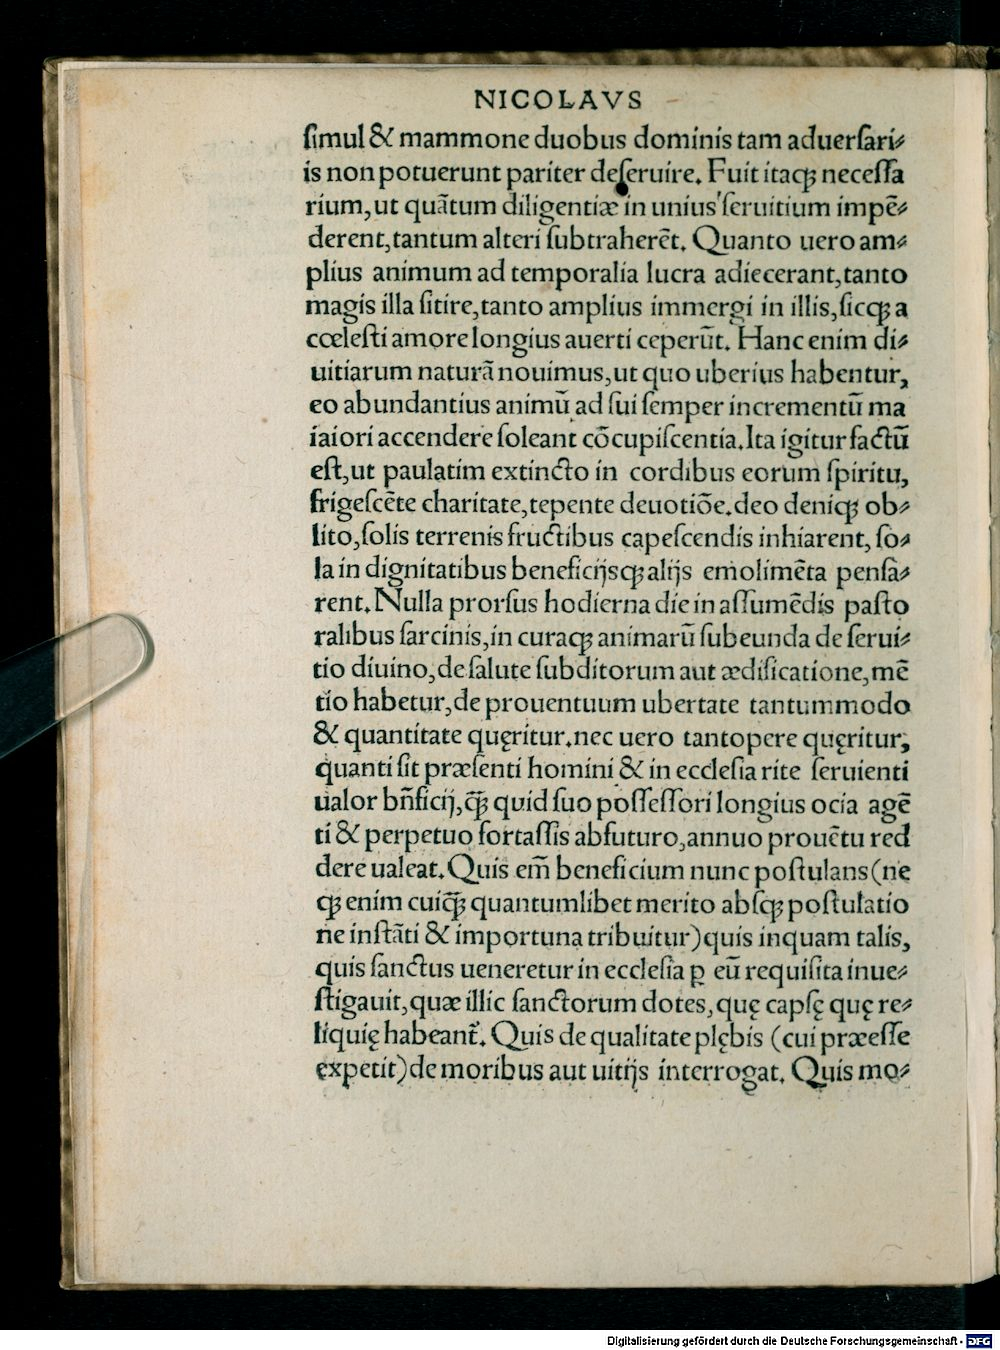 NICOLAVS
ſimul & mammone duobus dominis tam aduerſari-
is non potuerunt pariter deſeruire. Fuit itaqꝫ neceſſa
rium, ut quãtum diligentiæ in unius ſeruitium impẽ-
derent, tantum alteri ſubtraherẽt. Quanto uero am-
plius animum ad temporalia lucra adiecerant, tanto
magis illa ſitire, tanto amplius immergi in illis, ſicqꝫ a
cœleſti amore longius auerti ceperũt. Hanc enim di-
uitiarum naturã nouimus, ut quo uberius habentur,
eo abundantius animũ ad ſui ſemper incrementũ ma
iaiori accendere ſoleant cõcupiſcentia. Ita igitur factũ
eſt, ut paulatim extincto in cordibus eorum ſpiritu,
frigeſcẽte charitate, tepente deuotiõe. deo deniqꝫ ob-
lito, ſolis terrenis fructibus capeſcendis inhiarent, ſo-
la in dignitatibus beneficijsqꝫ alijs emolimẽta penſa-
rent. Nulla prorſus hodierna die in aſſumẽdis paſto
ralibus ſarcinis, in curaqꝫ animarũ ſubeunda de ſerui-
tio diuino, de ſalute ſubditorum aut ædificatione, mẽ
tio habetur, de prouentuum ubertate tantummodo
& quantitate quęritur. nec uero tantopere quęritur,
quanti ſit præſenti homini & in eccleſia rite ſeruienti
ualor bñficij, qꝫ̃ quid ſuo poſſeſſori longius ocia agẽ
ti & perpetuo fortaſſis abfuturo, annuo prouẽtu red
dere ualeat. Quis em̃ beneficium nunc poſtulans (ne
qꝫ enim cuiqꝫ̃ quantumlibet merito absqꝫ poſtulatio
ne inſtãti & importuna tribuitur) quis inquam talis,
quis ſanctus ueneretur in eccleſia ꝑ eũ requiſita inue-
ſtigauit, quæ illic ſanctorum dotes, quę capſę quę re-
liquię habeant᷑. Quis de qualitate plębis (cui præeſſe
expetit) de moribus aut uitijs interrogat. Quis mo-
Digitalisierung gefördert durch die Deutsche Forschungsgemeinschaft - DFG